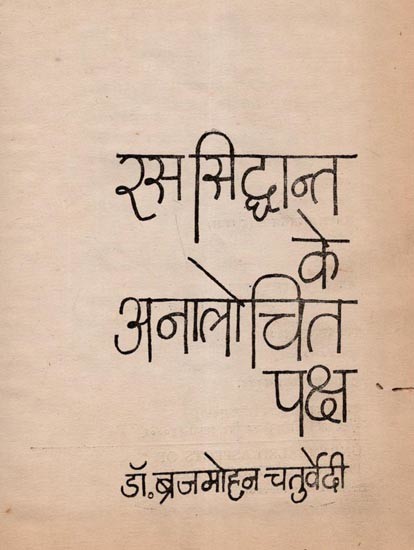 रस सिद्धान्त
के
अनालोचित
पक्ष
डॉ. ब्रजमोहन चतुर्वेदी